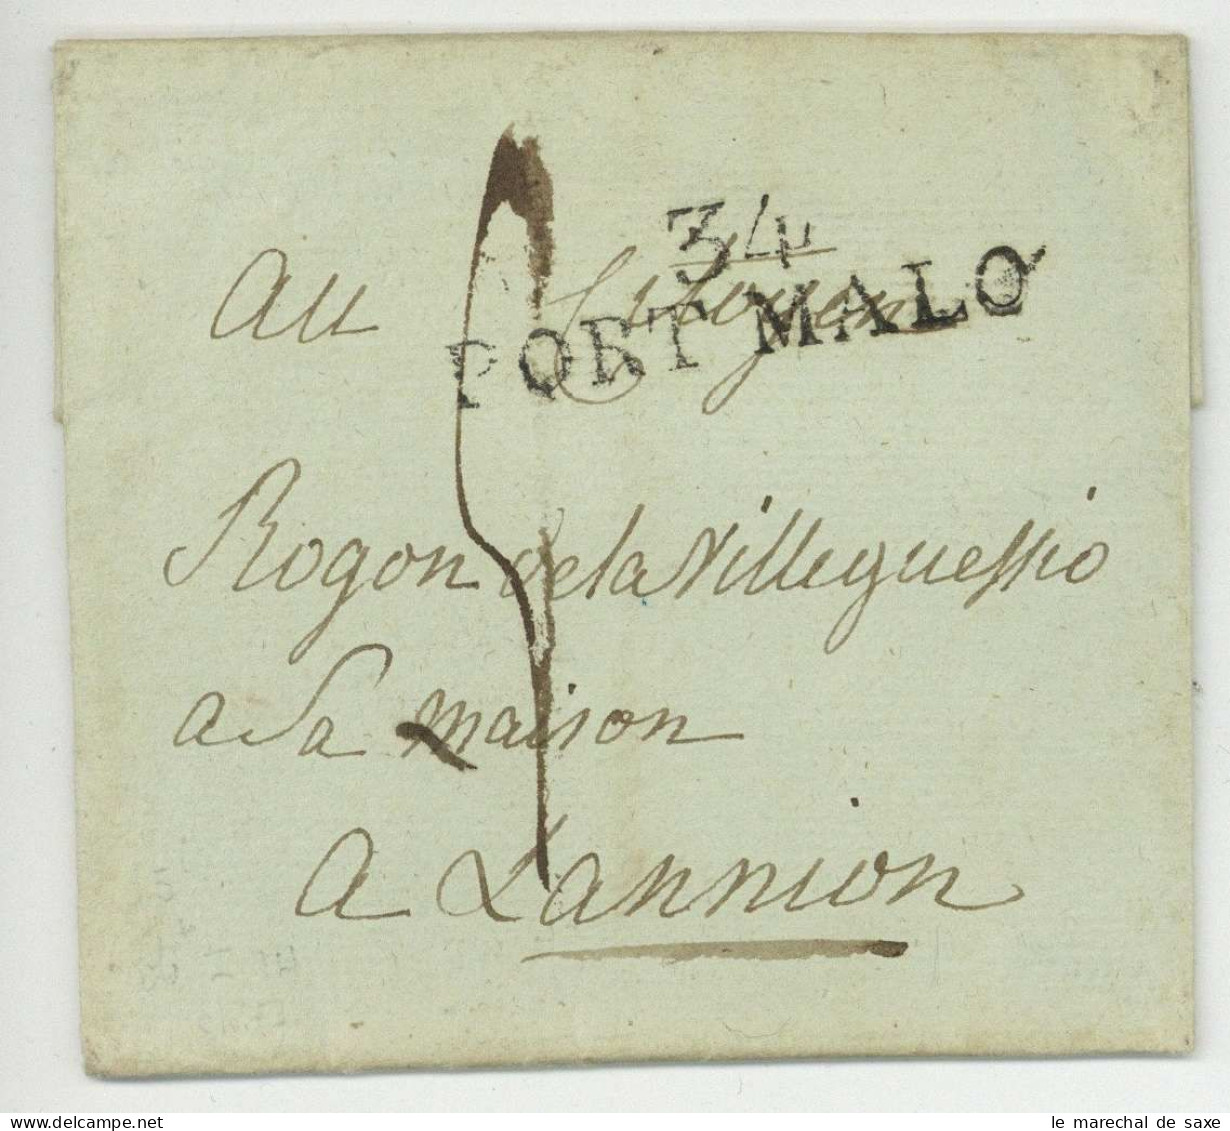 34
PORT MALO
Au Citoyen
Rogon de la Villeguessio
a Sa maison
a Lannion
DELCAMPE.NET
le marechal de saxe